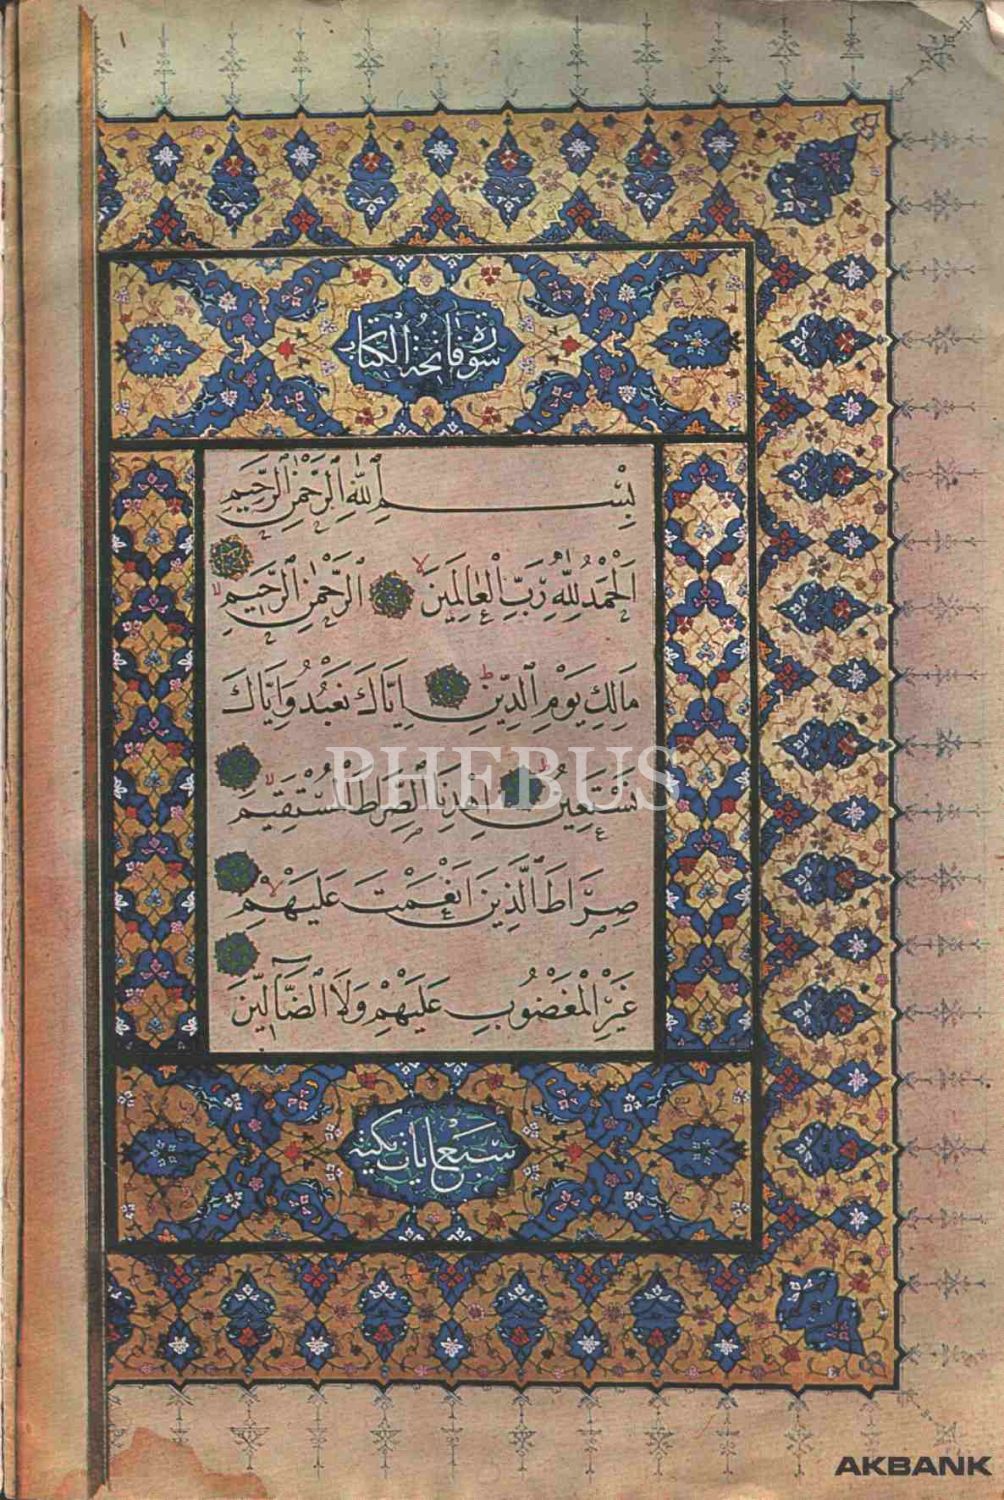 سورة فاتحة الكتاب
بِسْمِ ٱللّٰهِ ٱلرَّحْمٰنِ ٱلرَّحِيمِ
اَلْحَمْدُ لِلّٰهِ رَبِّ ٱلْعَالَمِينَ اَلرَّحْمٰنِ ٱلرَّحِيمِ
مَالِكِ يَوْمِ ٱلدِّينِ اِيَّاكَ نَعْبُدُ وَاِيَّاكَ
نَسْتَعِينُ اِهْدِنَا ٱلصِّرَاطَ ٱلْمُسْتَقِيمَ
صِرَاطَ ٱلَّذِينَ اَنْعَمْتَ عَلَيْهِمْ
غَيْرِ ٱلْمَغْضُوبِ عَلَيْهِمْ وَلَا ٱلضَّآلِّينَ
سبع ايات مكية
PHEBUS
AKBANK